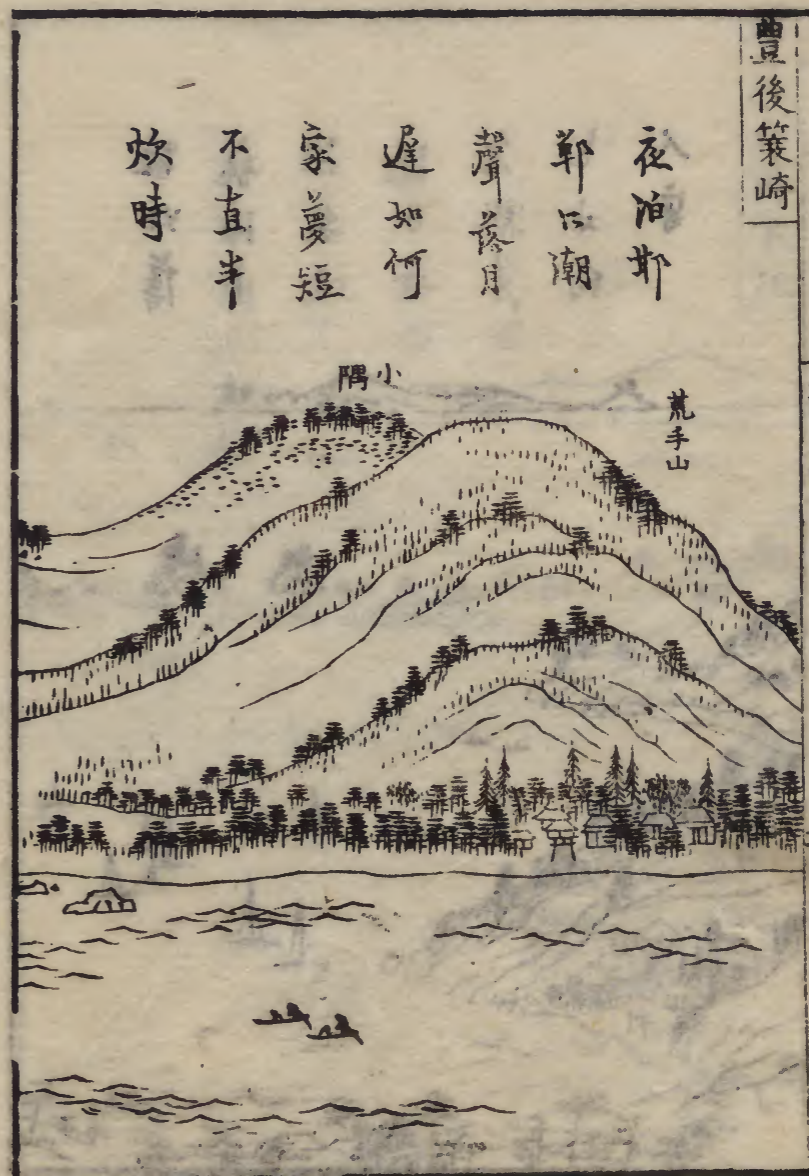 豊後簑崎
夜泊邯
鄲江潮
聲落月
遅如何
家夢短
不直半
炊時
荒手山
小隅